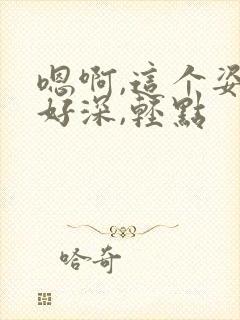 嗯啊,這个姿
好深,輕點
哈奇